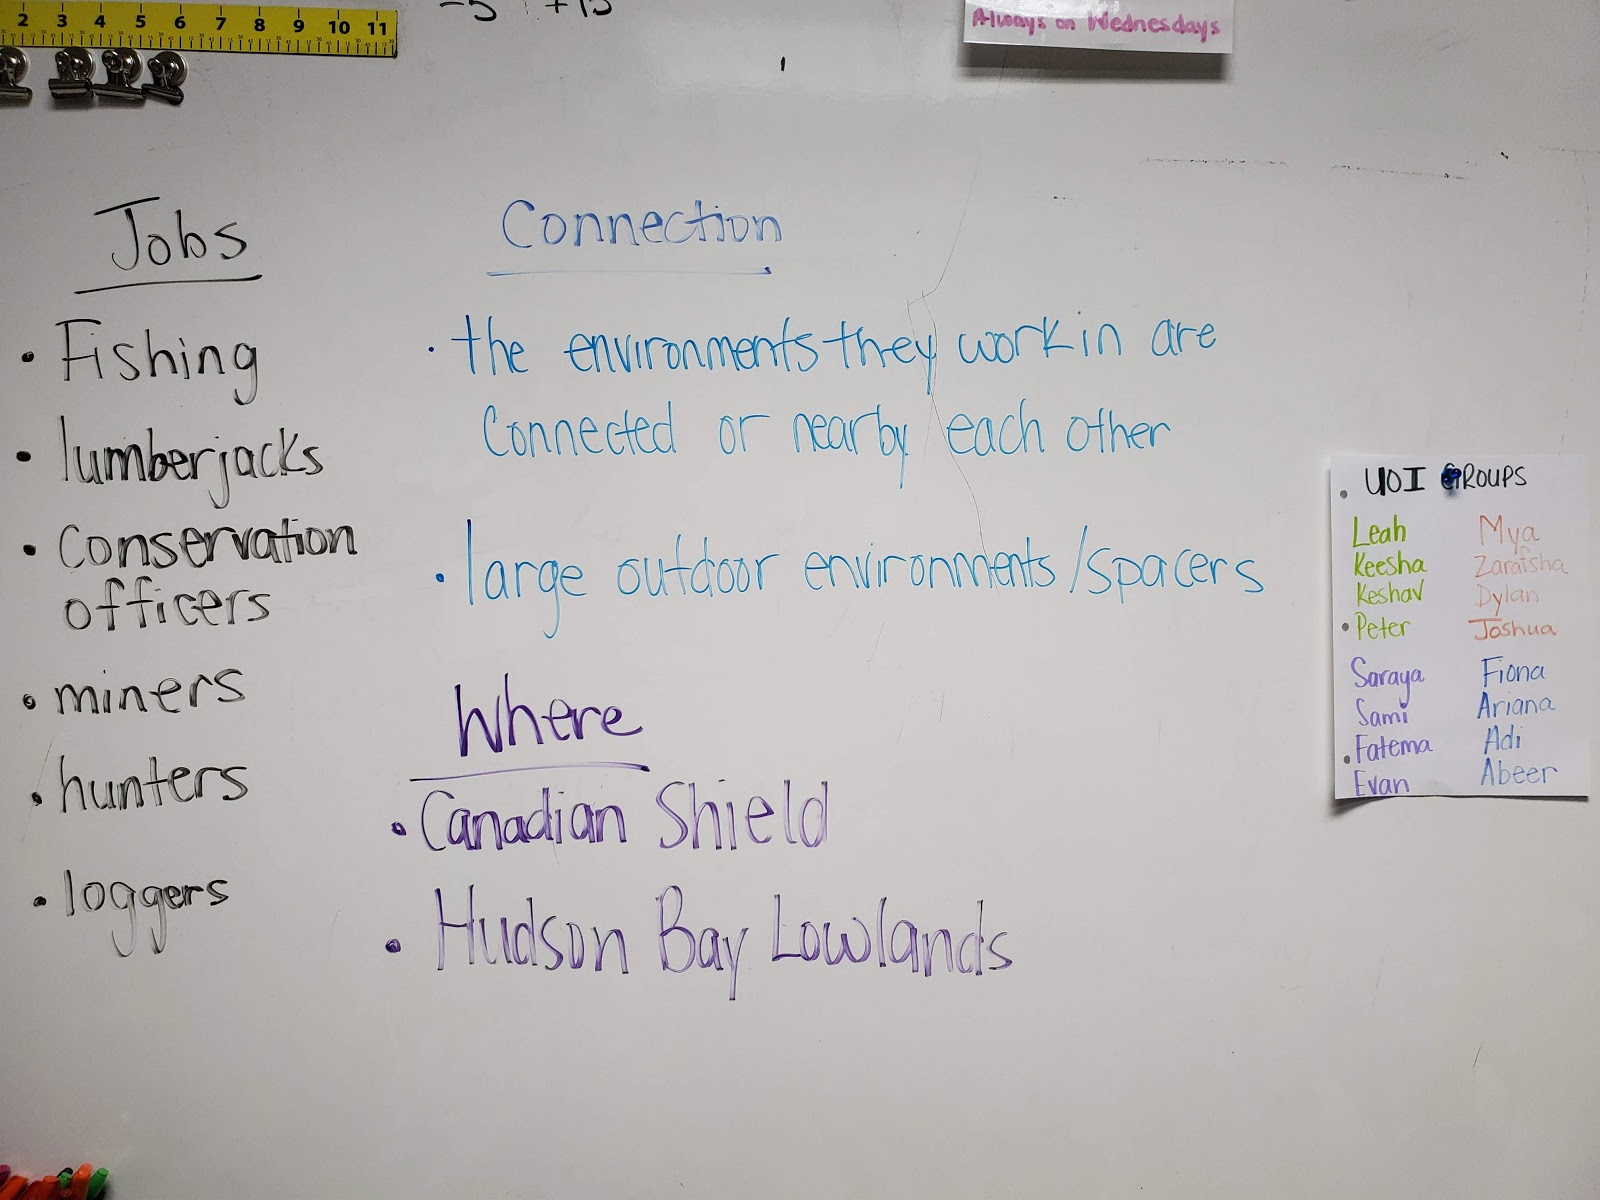 2 3 4 5 6 7 8 9 10 11
-5 +15
Always on Wednesdays
Jobs
• Fishing
• lumberjacks
• conservation
officers
• miners
• hunters
• loggers
Connection
• the environments they work in are
Connected or nearby each other
• large outdoor environments/spacers
Where
• Canadian Shield
• Hudson Bay Lowlands
UOI GROUPS
Leah
Keesha
Keshav
Peter
Mya
Zarafsha
Dylan
Joshua
Saraya
Sami
Fatema
Evan
Fiona
Ariana
Adi
Abeer